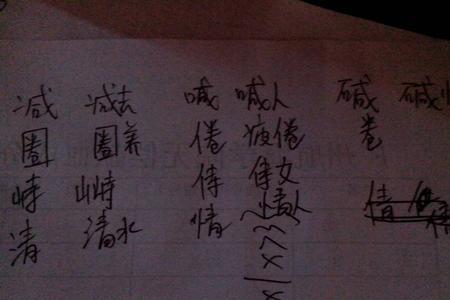 减 减去 喊 喊人 碱 碱
圈 圈养 倦 疲倦 卷
峙 峙 侍 侍女
清 清水 情 情人 倩